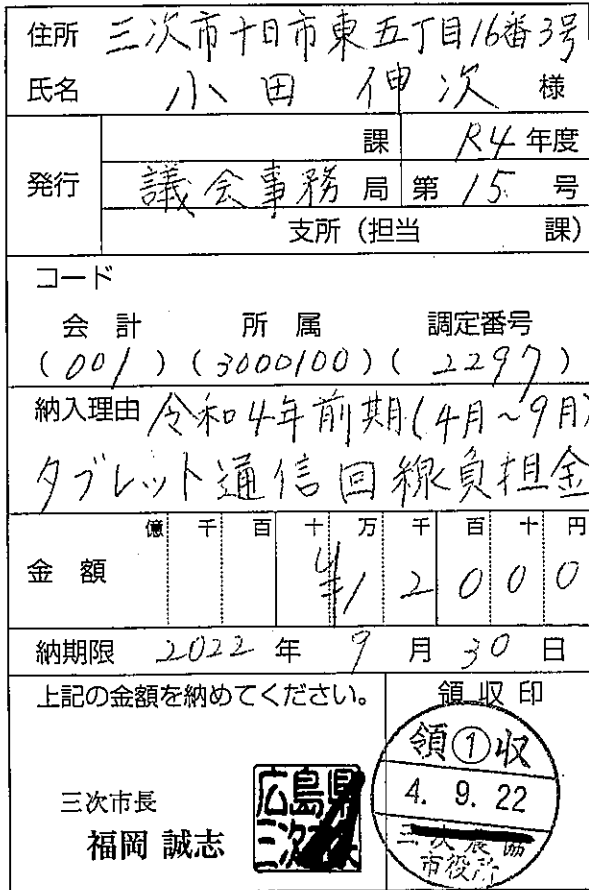 住所 三次市十日市東五丁目16番3号
氏名 小田 伸次 様
課 R4 年度
発行 議会事務 局 第 15 号
支所 (担当 課)
コード
会計 所属 調定番号
(001) (3000100) (2297)
納入理由 令和4年前期(4月~9月)
タブレット通信回線負担金
億 千 百 十 万 千 百 十 円
金額 ¥12000
納期限 2022 年 9 月 30 日
上記の金額を納めてください。
領収印
領①収
4. 9. 22
市役所
三次市長
福岡 誠志
広島県
三次